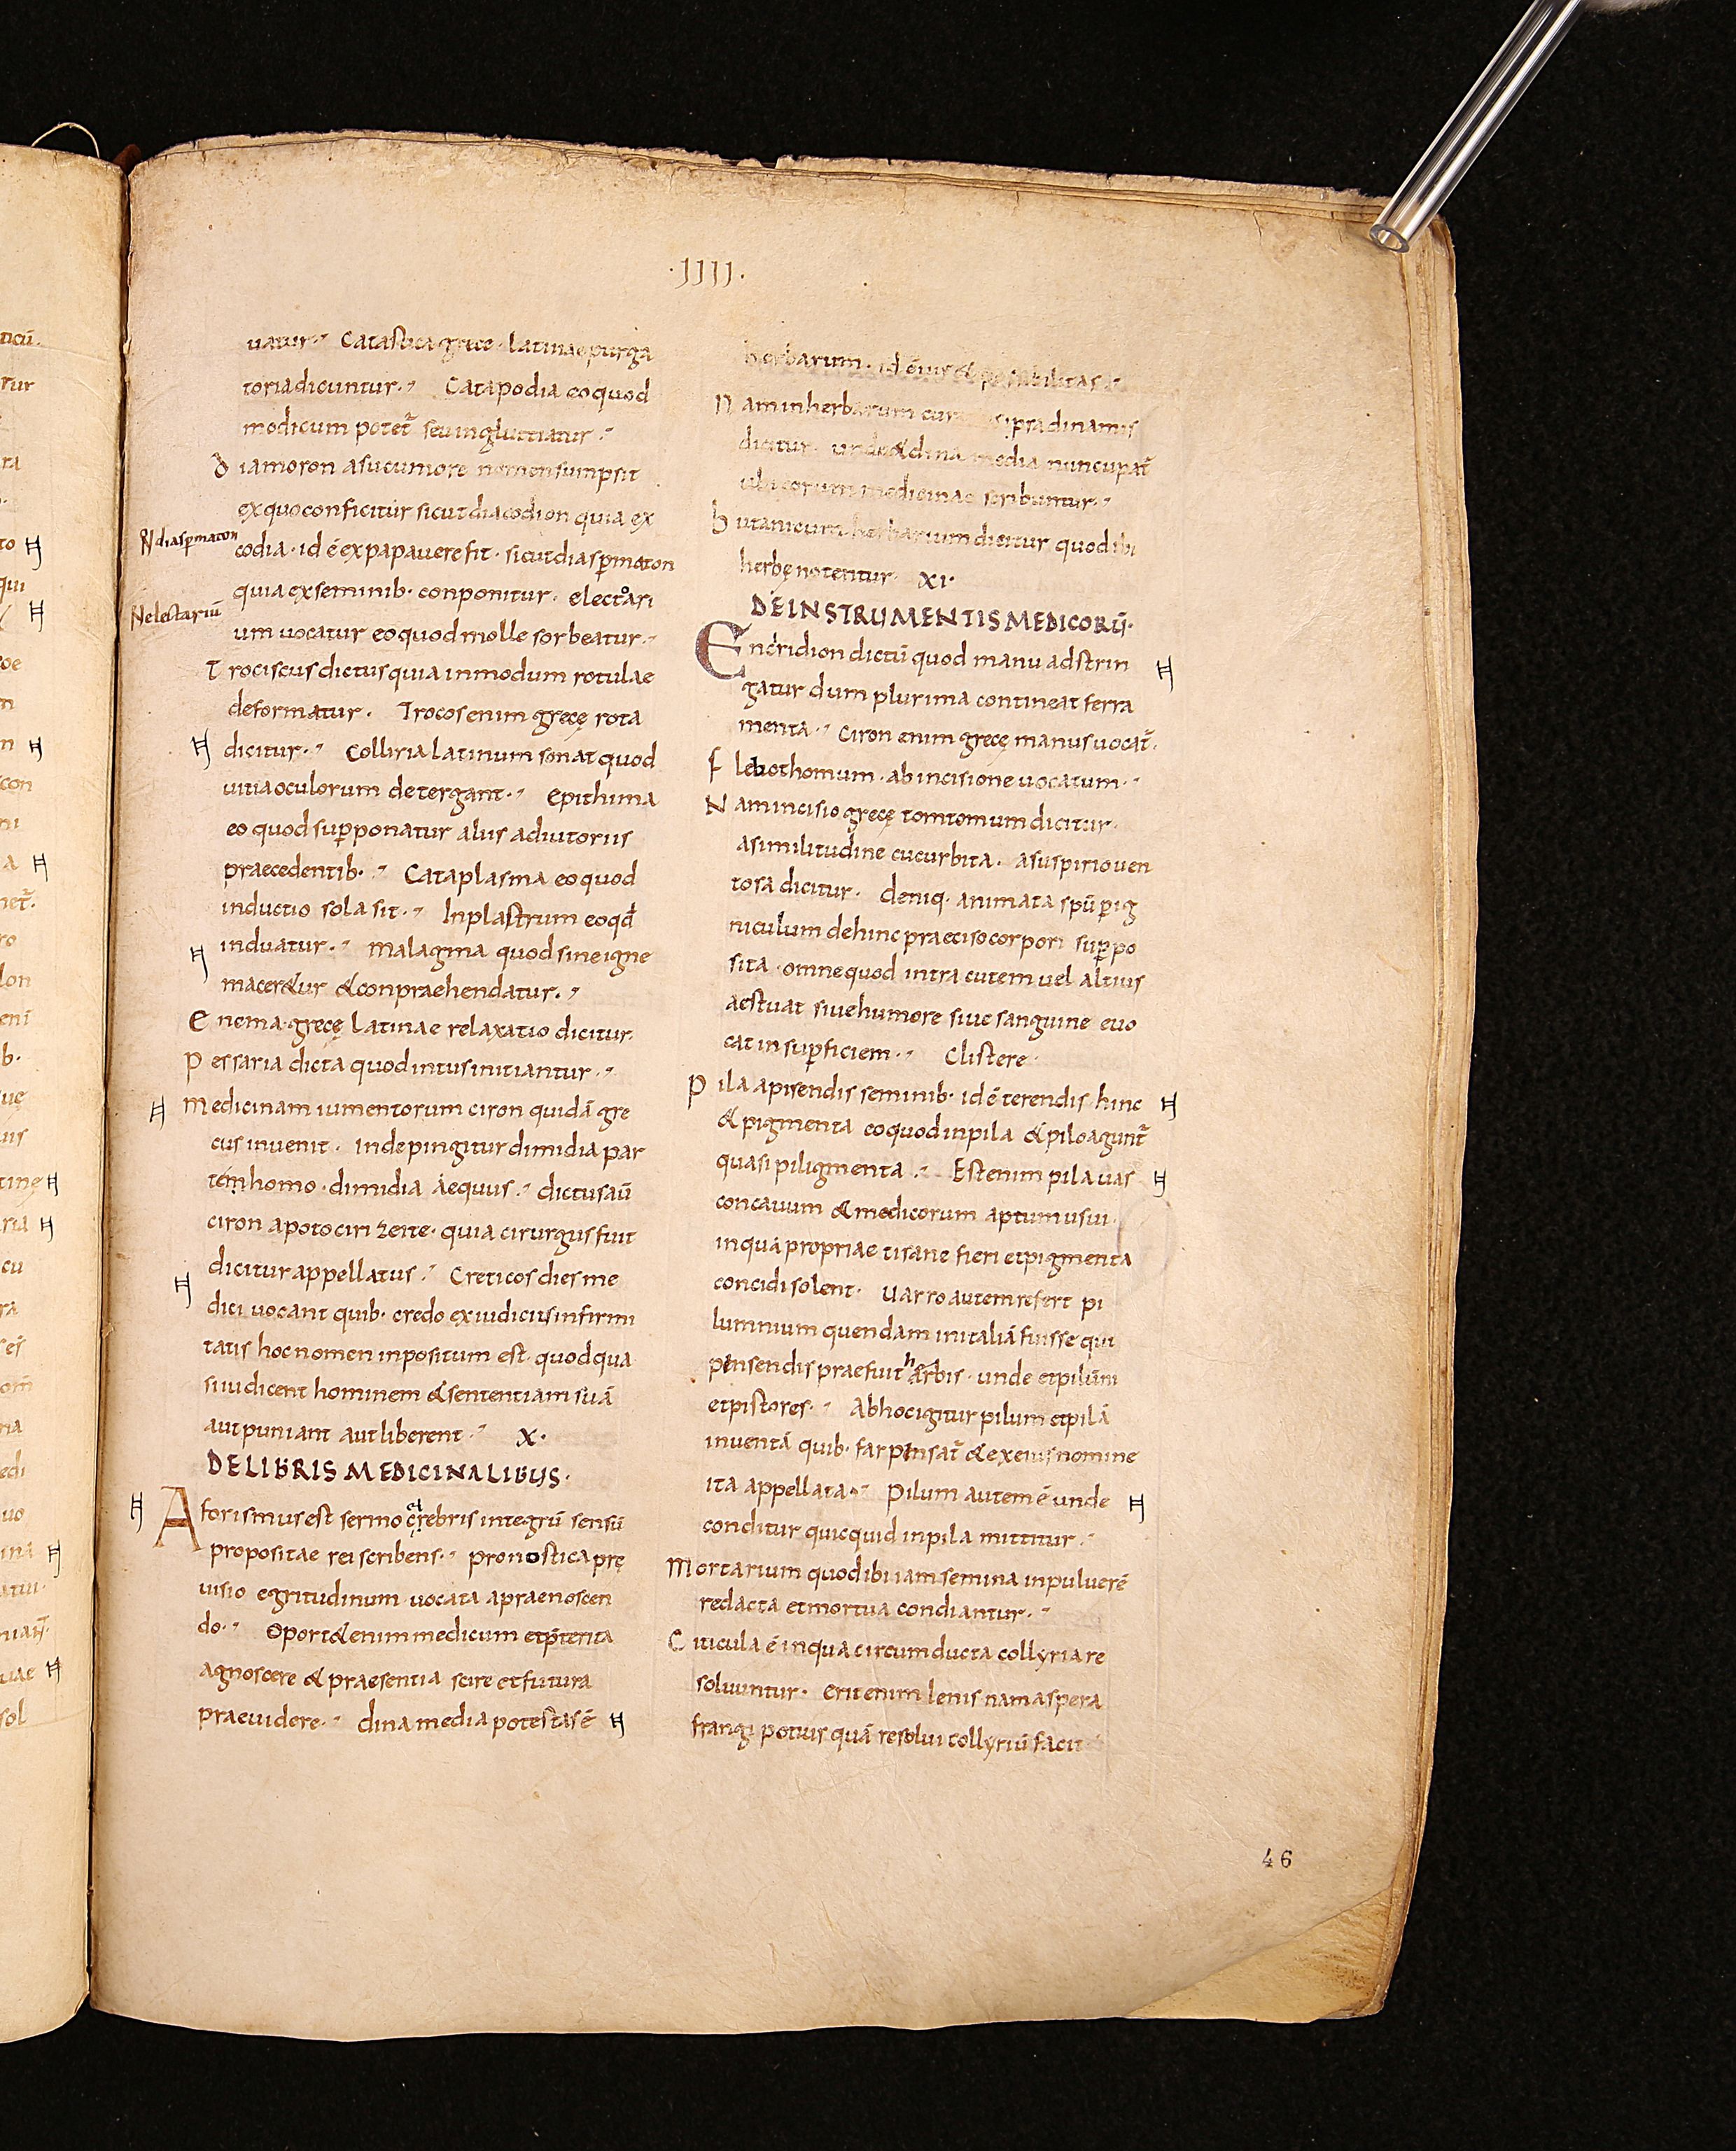 ·IIII·
uatur·
Catastica grece · latinae purga
toria dicuntur·
Catapodia eo quod
modicum potet̃ seu ingluttiatur·
Diamoron a suco more nomen sumpsit
ex quo conficitur sicut diacodion quia ex
N diasp̱maton
codia · id ē ex papauere fit · sicut diasp̱maton
quia ex seminib· conponitur · electoari
N electariū
um uocatur eo quod molle sorbeatur·
Trociscus dictus quia in modum rotulae
deformatur · Trocos enim grecę rota
dicitur· Colliria latinum sonat quod
uitia oculorum detergant· Epithima
eo quod sup̱ponatur aliis adiutoriis
praecedentib· Cataplasma eo quod
inductio sola sit· Inplastrum eo qđ
induatur· Malagma quod sine igne
macer&ur & conpraehendatur·
Enema · grecę latinae relaxatio dicitur·
Pessaria dicta quod intus initiantur·
Medicinam iumentorum ciron quidā gre
cus inuenit · inde pingitur dimidia par
tem homo · dimidia aequus· dictus aū
ciron apoto ciri zeite · quia cirurgus fuit
dicitur appellatus· Creticos dies me
dici uocant quib· credo ex iudiciis infirmi
tatis hoc nomen inpositum est · quod qua
si iudicent hominem & sententiam suā
aut puniant aut liberent· X·
DE LIBRIS MEDICINALIBUS·
Aforismus est sermo crebris integrū sensū
propositae rei scribens· pronostica prę
uisio egritudinum uocata a praenoscen
do· Oport& enim medicum et p̄terita
agnoscere & praesentia scire et futura
praeuidere· dinamedia potestas ē
herbarum · id
Nam in herbarum ipsa dinamis
dicitur · unde & dinamedia nuncupat̃
ubi eorum medicinae scribuntur·
Butanicum herbarium dicitur quod ibi
herbę notentur XI·
DE INSTRUMENTIS MEDICORŪ·
Encridion dictū quod manu adstrin
gatur dum plurima contineat ferra
menta· Ciron enim grecę manus uocat̃·
Flebothomum · ab incisione uocatum·
Nam incisio grecę tomtomum dicitur·
a similitudine cucurbita · a suspirio uen
tosa dicitur · deniq· animata spū p̱ ig
niculum dehinc praeciso corpori sup̱po
sita · omne quod intra cutem uel altius
aestuat siue humore siue sanguine euo
cat in sup̱ficiem· Clistere·
Pila a pisendis seminib· id ē terendis hinc
& pigmenta eo quod in pila & pilo agunt̃
quasi piligmenta· Est enim pila uas
concauum & medicorum aptum usui·
in qua propriae tisane fieri et pigmenta
concidi solent· Uarro autem refert pi
lumnium quendam in italiā fuisse qui
pensendis praefuit harbis · unde et pilūni
et pistores· Ab hoc igitur pilum et pilā
inuentā quib· far pensat̃ & ex eius nomine
ita appellata· Pilum autem ē unde
conditur quicquid in pila mittitur·
Mortarium quod ibi iam semina in puluerē
redacta et mortua condiantur·
Citicula ē in qua circumducta collyria re
soluuntur· erit enim lenis nam aspera
frangi potius quā resolui collyriū facit
46